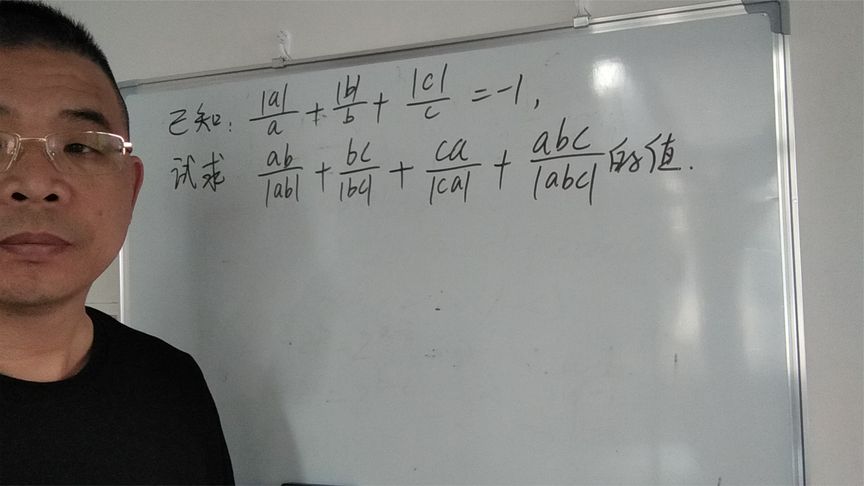 已知: |a|/a + |b|/b + |c|/c = -1,
试求 ab/|ab| + bc/|bc| + ca/|ca| + abc/|abc| 的值.